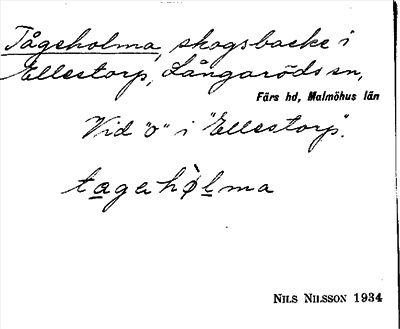 Tågeholma, skogsbacke i
Ellestorp, Långaröds sn,
Färs hd, Malmöhus län
Vid "o" i "Ellestorp".
tagehòlma
NILS NILSSON 1934